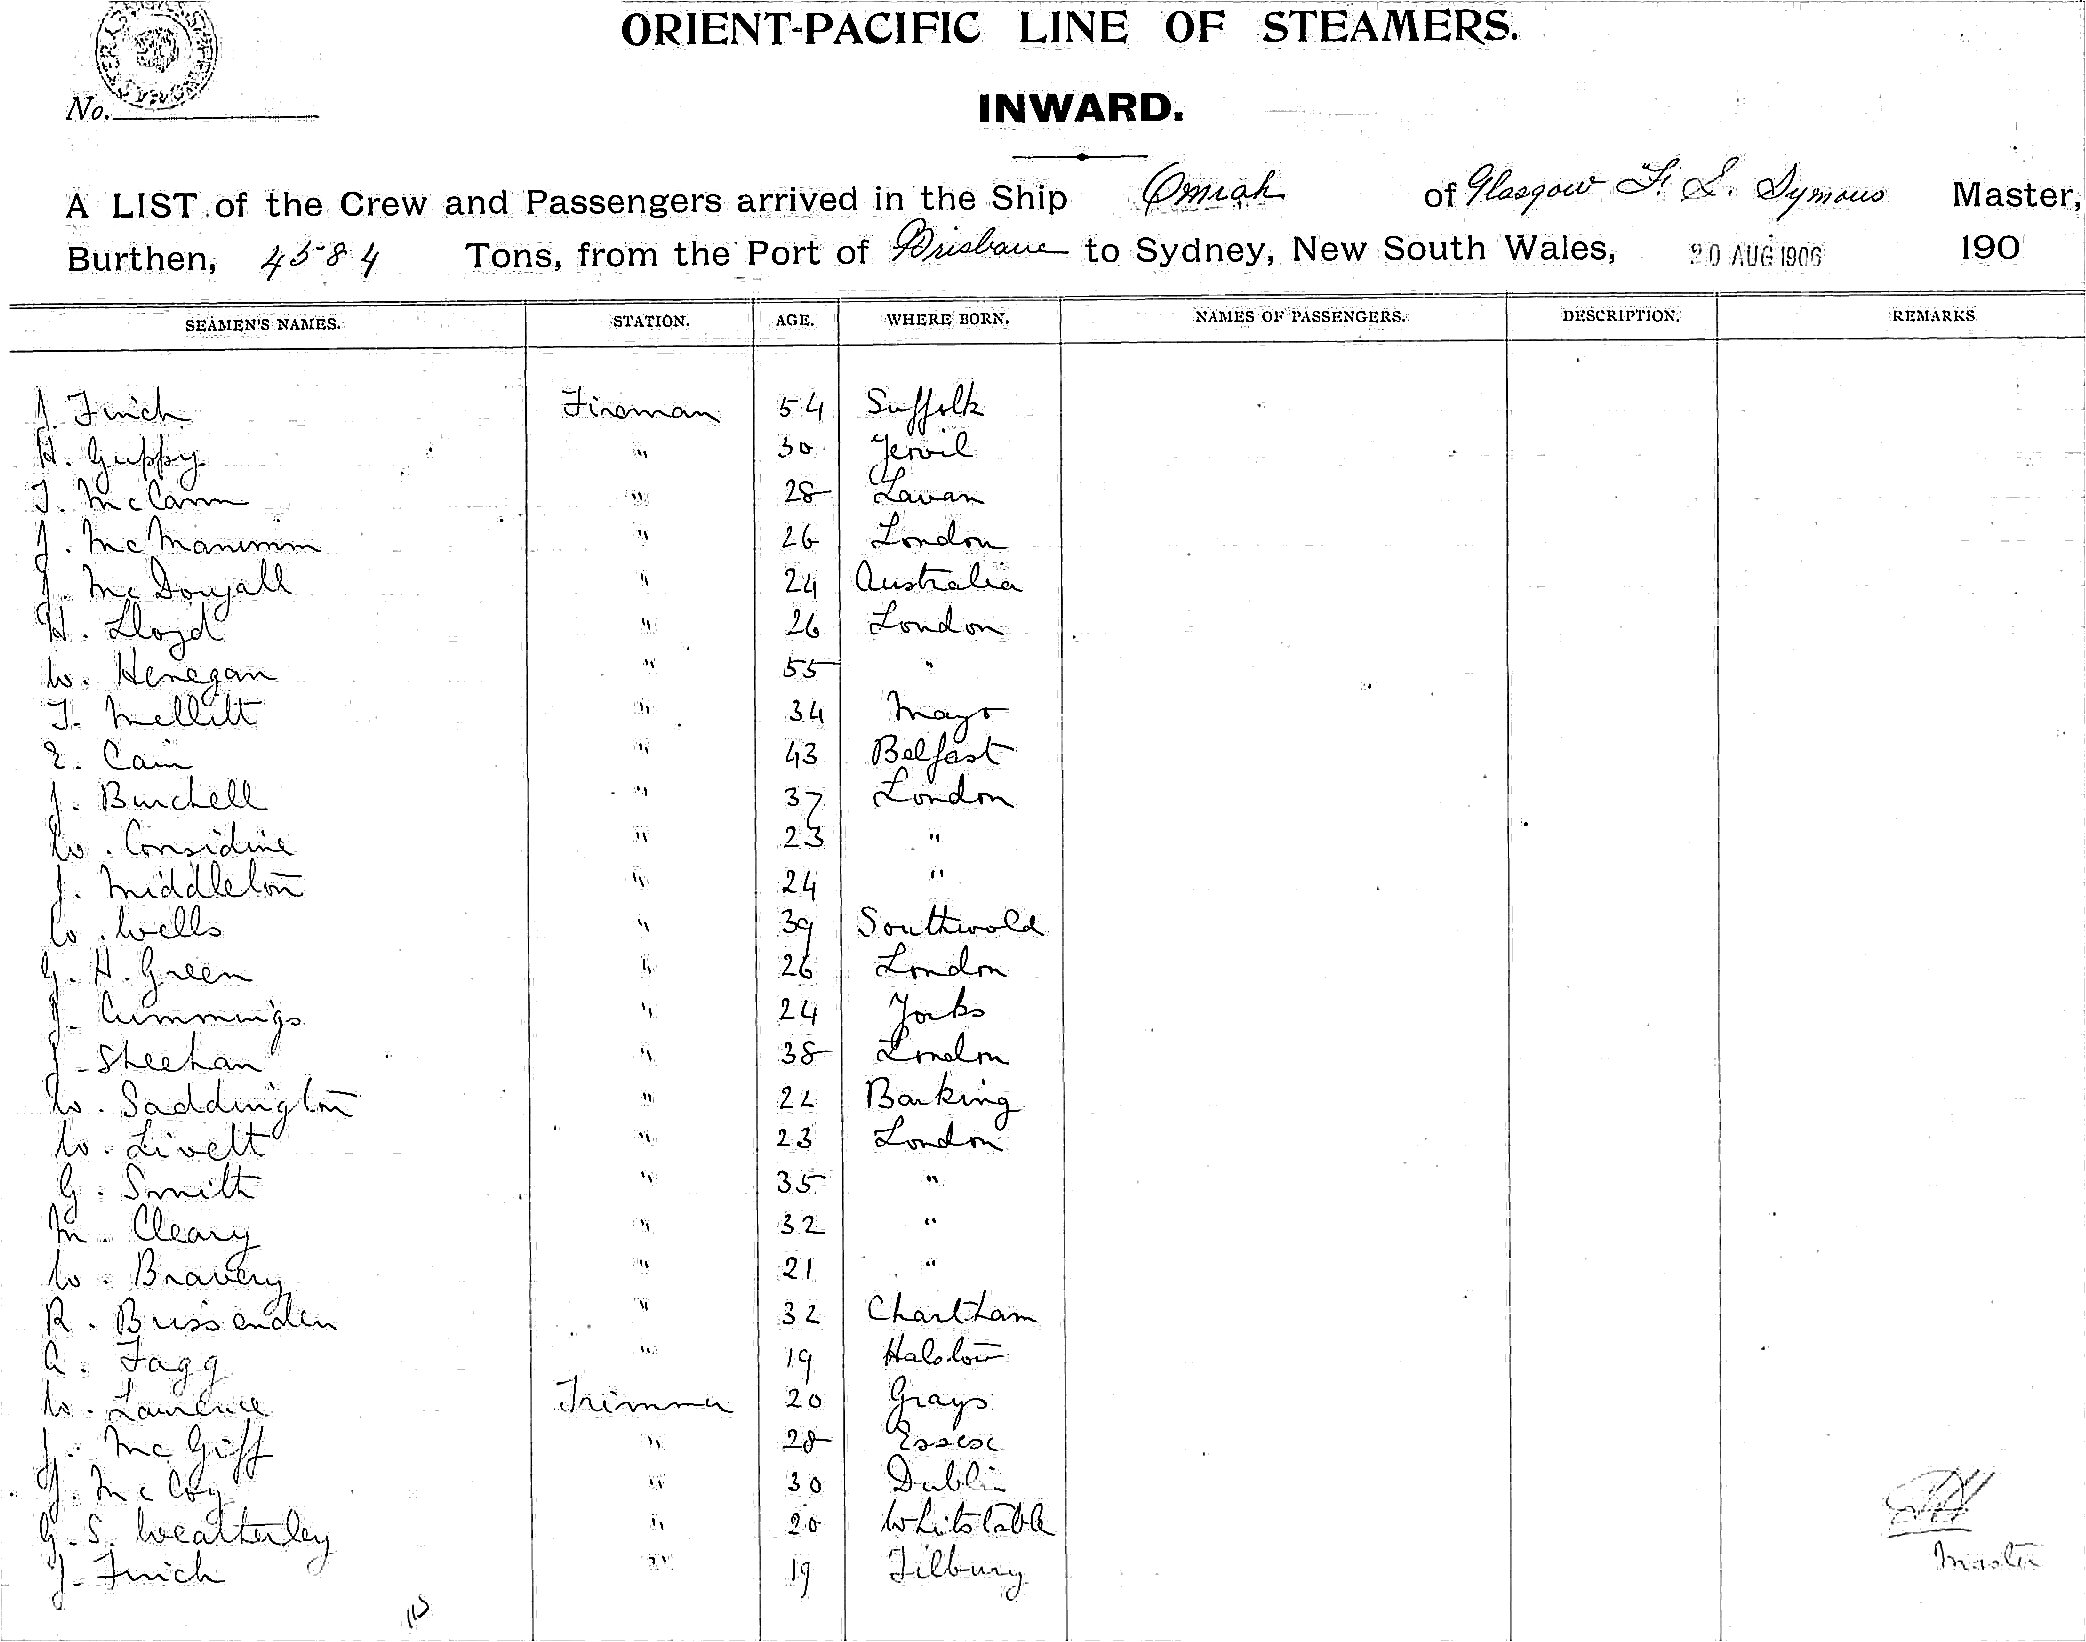 ORIENT-PACIFIC LINE OF STEAMERS.
No.
INWARD.
A LIST of the Crew and Passengers arrived in the Ship Omrah of Glasgow F. S. Symons Master,
Burthen, 4584 Tons, from the Port of Brisbane to Sydney, New South Wales, 20 AUG 1906 190
SEAMEN'S NAMES. STATION. AGE. WHERE BORN. NAMES OF PASSENGERS. DESCRIPTION. REMARKS
J. Finch Fireman 54 Suffolk
H. Guppy " 30 Yeovil
T. McCann " 28 Cavan
J. McManimm " 26 London
J. McDougall " 24 Australia
H. Lloyd " 26 London
W. Henegan " 55 "
T. Mellitt " 34 Mayo
E. Cain " 43 Belfast
J. Burchell " 37 London
W. Considine " 23 "
J. Middleton " 24 "
W. Wells " 39 Southwold
G. H. Green " 26 London
J. Cummings " 24 Yorks
J. Sheehan " 38 London
W. Saddington " 22 Barking
W. Livett " 23 London
G. Smith " 35 "
M. Cleary " 32 "
W. Bravery " 21 "
R. Brissenden " 32 Chartham
A. Fagg " 19 Halstow
W. Laurence Trimmer 20 Grays
J. McGiff " 28 Essex
J. McCoy " 30 Dublin
G. S. Weatherley " 20 Whitstable
J. Finch " 19 Tilbury
Master